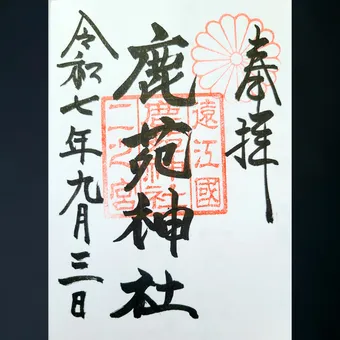 奉拝
鹿苑神社
遠江國
鹿苑神社
二之宮
令和七年九月三日